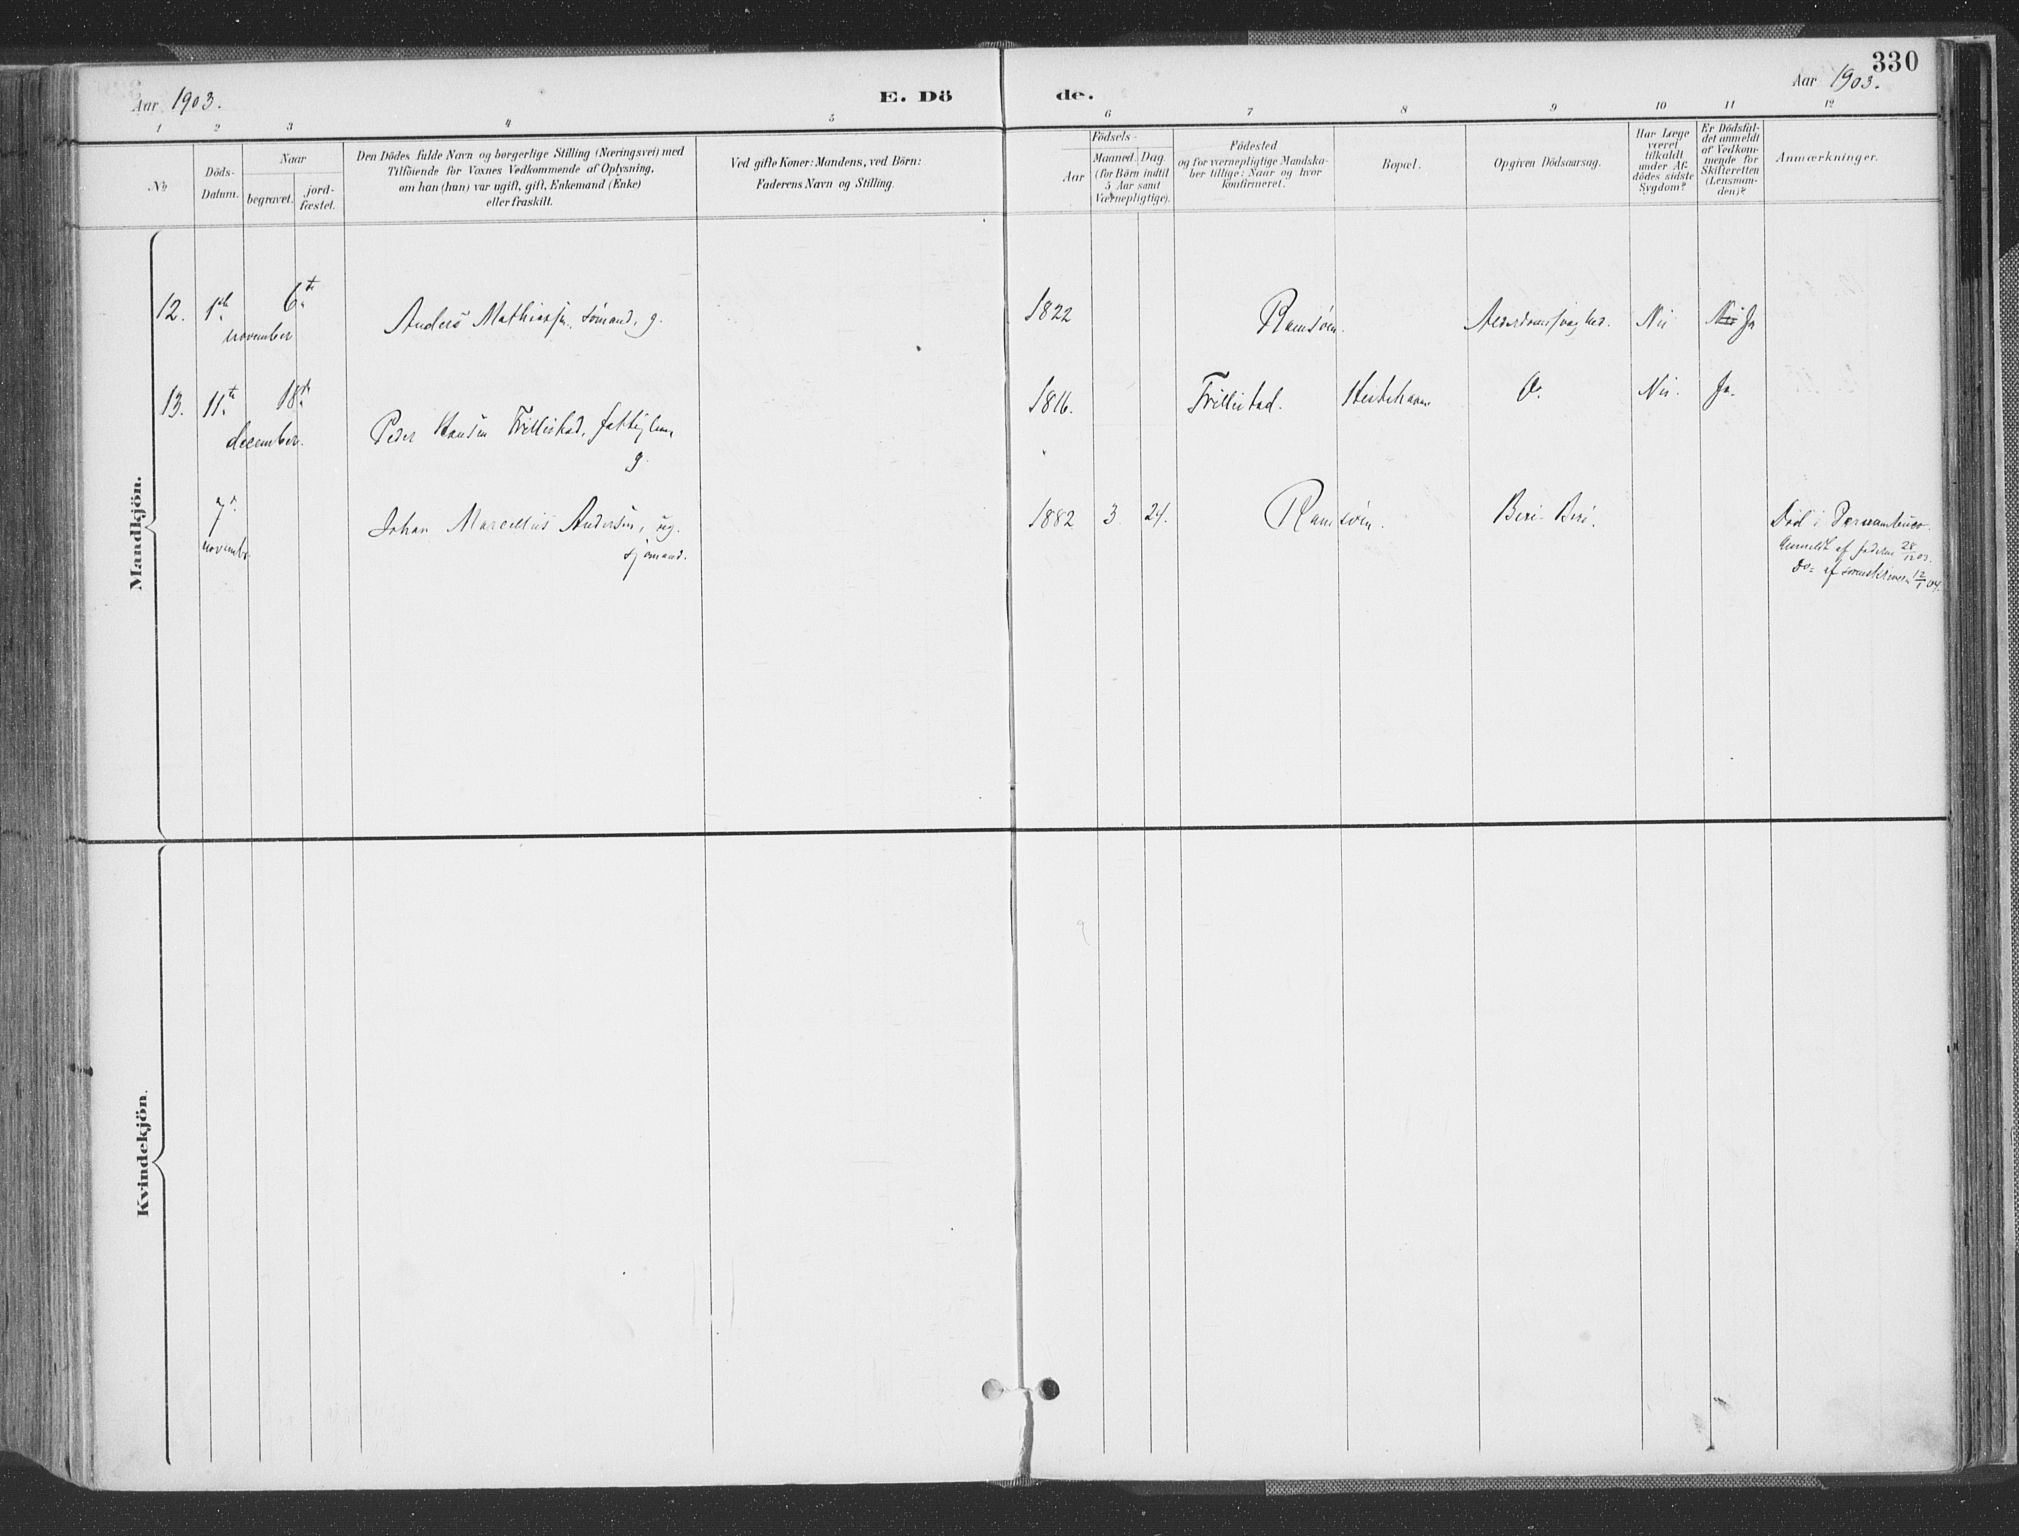 330
Aar 1903.
E. Dö
de.
Aar 1903.
1 2 3 4 5 6 7 8 9 10 11 12
No
Döds-
Datum.
Naar
begravet.
jord-
fæstet.
Den Dödes fulde Navn og borgerlige Stilling (Næringsvei) med
Tilföiende for Voxnes Vedkommende af Oplysning,
om han (hun) var ugift, gift, Enkemand (Enke)
eller fraskilt.
Ved gifte Koner: Mandens, ved Börn:
Faderens Navn og Stilling.
Födsels-
Aar
Maaned. Dag.
(for Börn indtil
5 Aar samt
Værnepligtige).
Födested
og for værnepligtige Mandska-
ber tillige: Naar og hvor
konfirmeret.
Bopæl.
Opgiven Dödsaarsag.
Har Læge
været
tilkaldt
under Af-
dödes sidste
Sygdom?
Er Dödsfal-
det anmeldt
af Vedkom-
mende for
Skifteretten
(Lensman-
den)?
Anmærkninger.
Mandkjön.
12. 1ste 6te Anders Mathiassen, sömand, g. 1822 Ramsöen. Alderdomssvaghed. Nei Nei Ja
november
13. 11te 18de Peder Hansen Trillestad, fattiglem, 1816. Trillestad. Do Nei. Ja.
december. g.
7de Johan Marcellius Andersen, ug. 1882 3. 24. Ramsöen. Beri-Beri. Död i Pernambuco.
november sjömand. Anmeldt af faderen 28/12 03.
Do= af 12/1 04.
Kvindekjön.